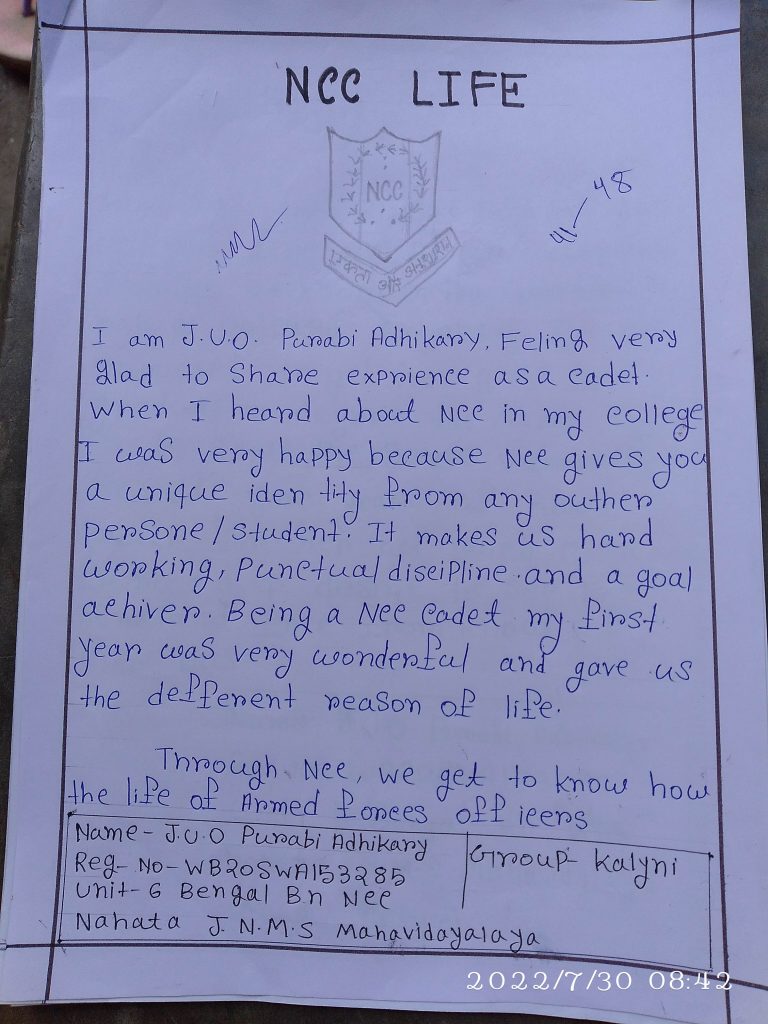 NCC LIFE
NCC
एकता और अनुशासन
48
I am J.U.O. Purabi Adhikary, Feling very
glad to Share exprience as a cadet.
When I heard about NCC in my college
I was very happy because NCC gives you
a unique iden tity from any outher
persone/student. It makes us hard
working, Punctual discipline and a goal
achiver. Being a NCC Cadet my first
year was very wonderful and gave us
the defferent reason of life.
Through NCC, we get to know how
the life of Armed forces off icers
Name- J.U.O Purabi Adhikary
Group- Kalyni
Reg- No- WB20SWA153285
Unit- 6 Bengal Bn NCC
Nahata J.N.M.S Mahavidayalaya
2022/7/30 08:42